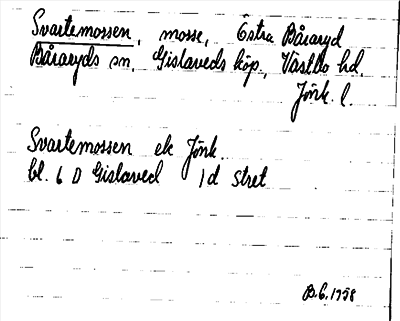 Svartemossen, mosse, Östra Båraryd
Båraryds sn, Gislaveds köp., Västbo hd.
Jönk. l.
Svartemossen ek Jönk.
bl. 6 D Gislaved 1d Stret
B.G. 1958